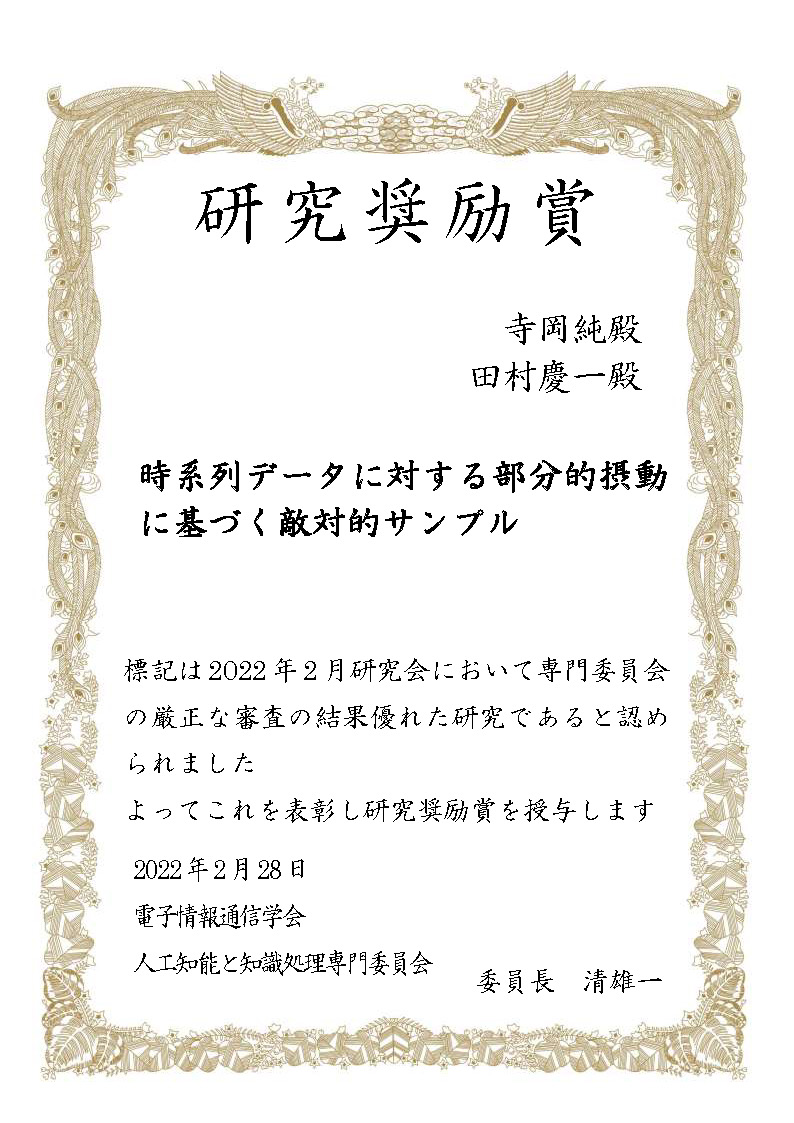 研究奨励賞
寺岡純殿
田村慶一殿
時系列データに対する部分的摂動
に基づく敵対的サンプル
標記は2022年2月研究会において専門委員会
の厳正な審査の結果優れた研究であると認め
られました
よってこれを表彰し研究奨励賞を授与します
2022年2月28日
電子情報通信学会
人工知能と知識処理専門委員会
委員長　清雄一